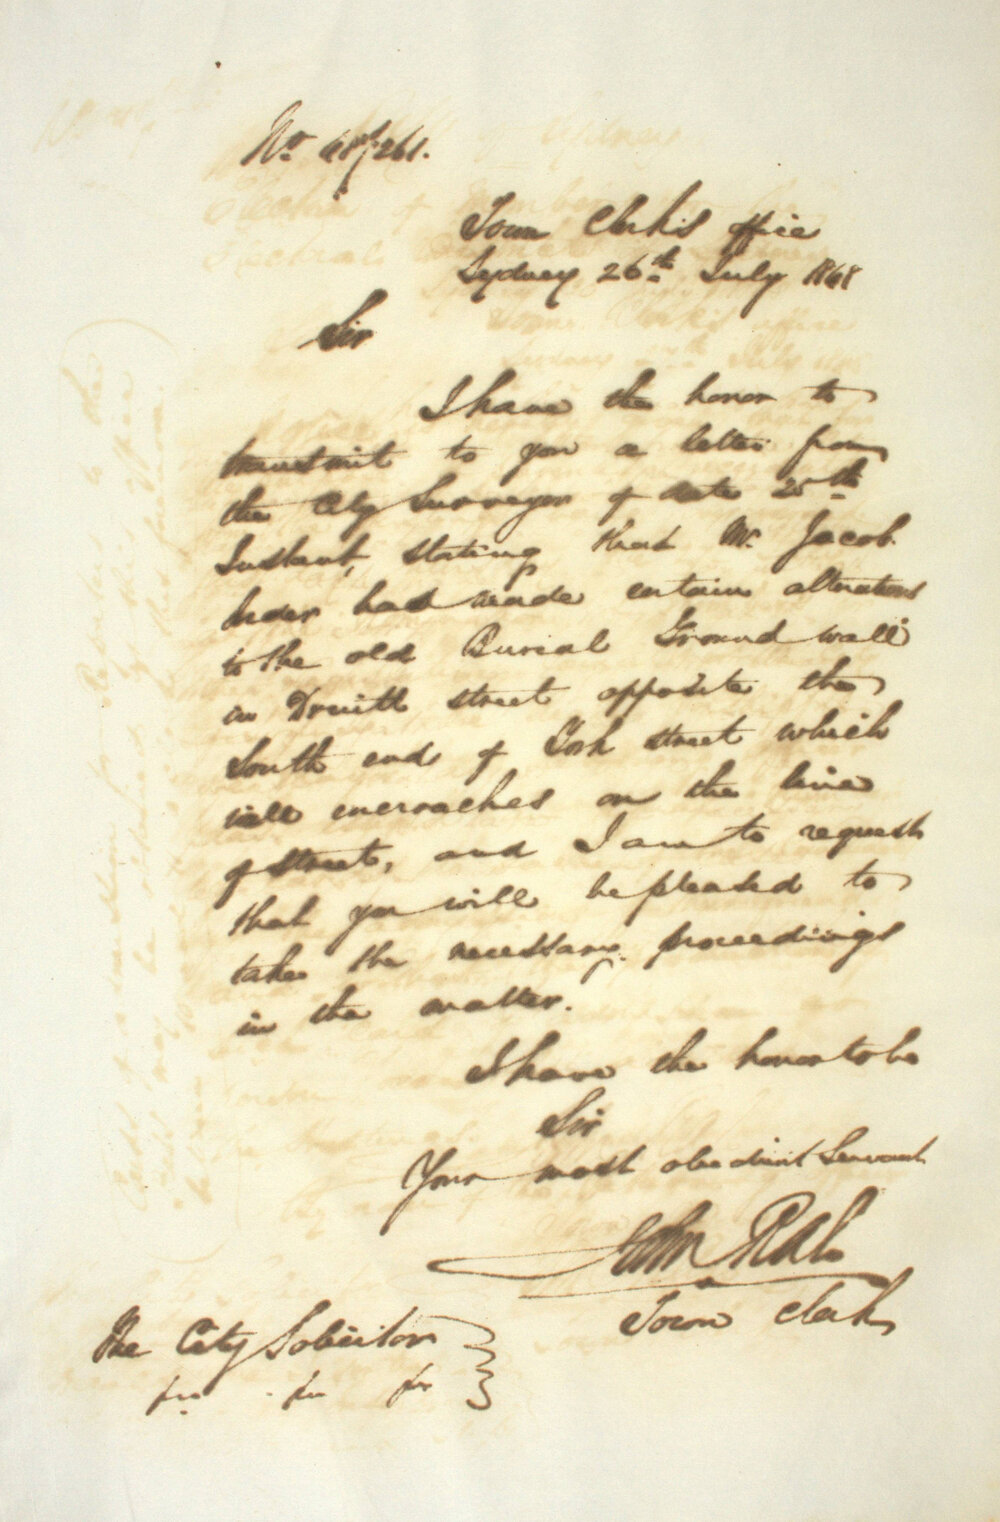 No. 68/261.
Town Clerk's Office
Sydney 26th July 1868
Sir
I have the honor to
transmit to you a letter from
the City Surveyor of date 25th
Instant, stating that Mr. Jacob
had made certain alterations
to the old Burial Ground wall
in Druitt street opposite the
South end of York street which
wall encroaches on the line
of street, and I am to request
that you will be pleased to
take the necessary proceedings
in the matter.
I have the honor to be
Sir
Your most obedient Servant
John Rae
Town Clerk
The City Solicitor